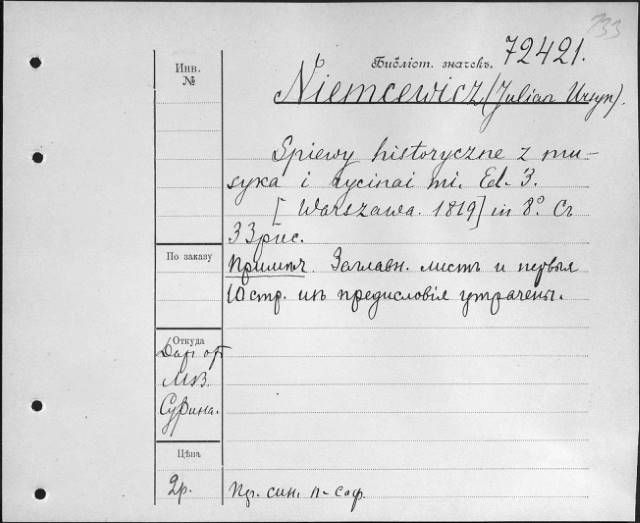 733
Библіот. значекъ. 72421.
Инв. №
Niemcewicz (Julian Ursyn).
Spiewy historyczne z mu-
syka i rycinai mi. Ed. 3.
[Warszawa. 1819] in 8°. Съ
33 рис.
По заказу
Примѣч. Заглавн. листъ и первыя
10 стр. изъ предисловія утрачены.
Откуда
Дар от
М.В.
Сурина.
Цѣна
2р.
син. п-саф.